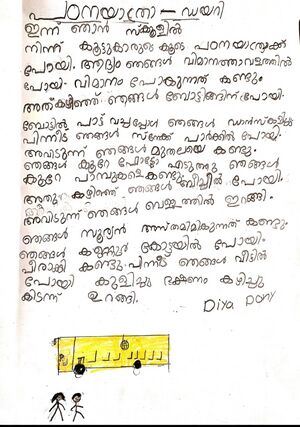 പഠനയാത്രാ - ഡയറി
ഇന്ന് ഞാൻ സ്കൂളിൽ
നിന്ന് കൂട്ടുകാരുടെ കൂടെ പഠനയാത്രക്ക്
പോയി. ആദ്യം ഞങ്ങൾ വിമാനത്താവളത്തിൽ
പോയി. വിമാനം പോകുന്നത് കണ്ടു.
അത് കഴിഞ്ഞ് ഞങ്ങൾ ബോട്ടിങ്ങിന് പോയി.
ബോട്ടിൽ പാട്ട് വച്ചപ്പോൾ ഞങ്ങൾ ഡാൻസ് കളിച്ചു
പിന്നീട് ഞങ്ങൾ സ്നേക്ക് പാർക്കിൽ പോയി.
അവിടുന്ന് ഞങ്ങൾ മുതലയെ കണ്ടു.
ഞങ്ങൾ കുറേ ഫോട്ടോ എടുത്തു ഞങ്ങൾ
കുറേ പാമ്പുകളെ കണ്ടു.
അതു കഴിഞ്ഞ് ഞങ്ങൾ ബീച്ചിൽ പോയി.
അവിടുന്ന് ഞങ്ങൾ വെള്ളത്തിൽ ഇറങ്ങി.
ഞങ്ങൾ സൂര്യൻ അസ്തമിക്കുന്നത് കണ്ടു.
ഞങ്ങൾ കണ്ണൂർ കോട്ടയിൽ പോയി.
പീരങ്കി കണ്ടു. പിന്നീട് ഞങ്ങൾ വീട്ടിൽ
പോയി കുളിച്ചു ഭക്ഷണം കഴിച്ചു
കിടന്ന് ഉറങ്ങി.
Diya Dony